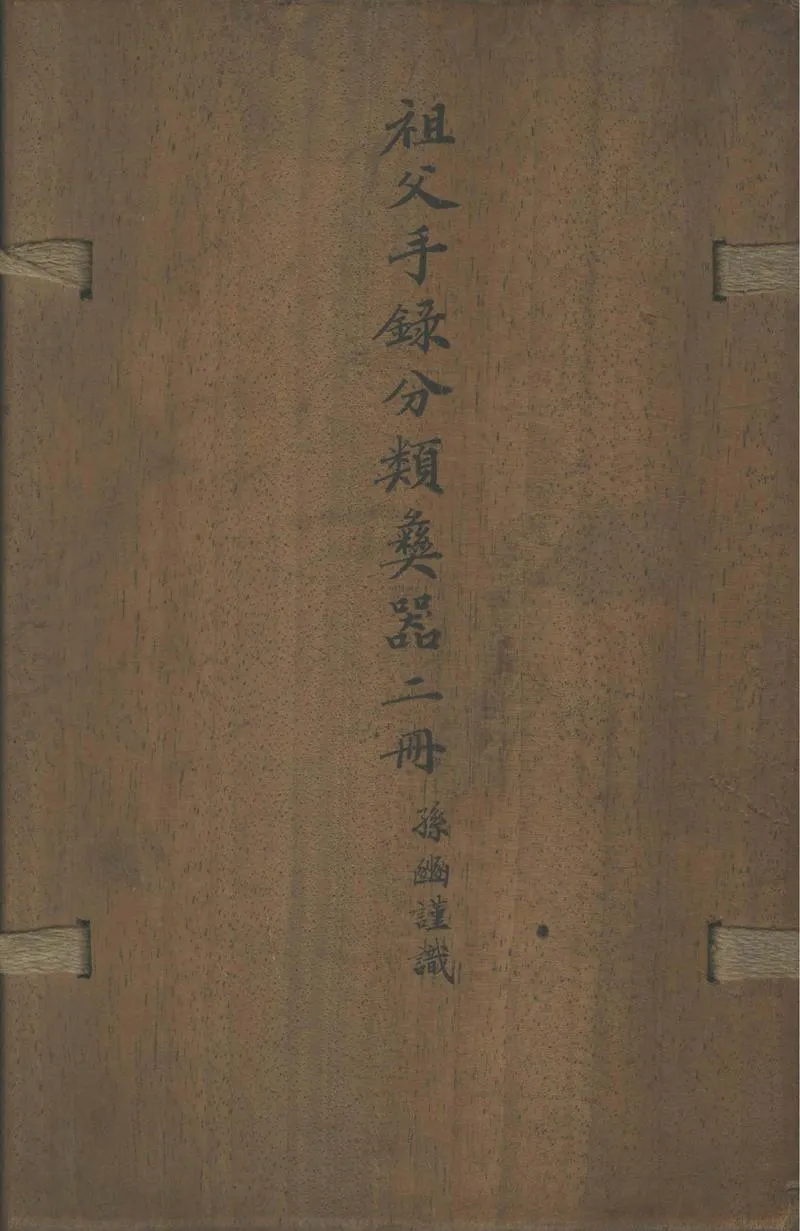 祖父手錄分類彝器二冊
孫幽謹識